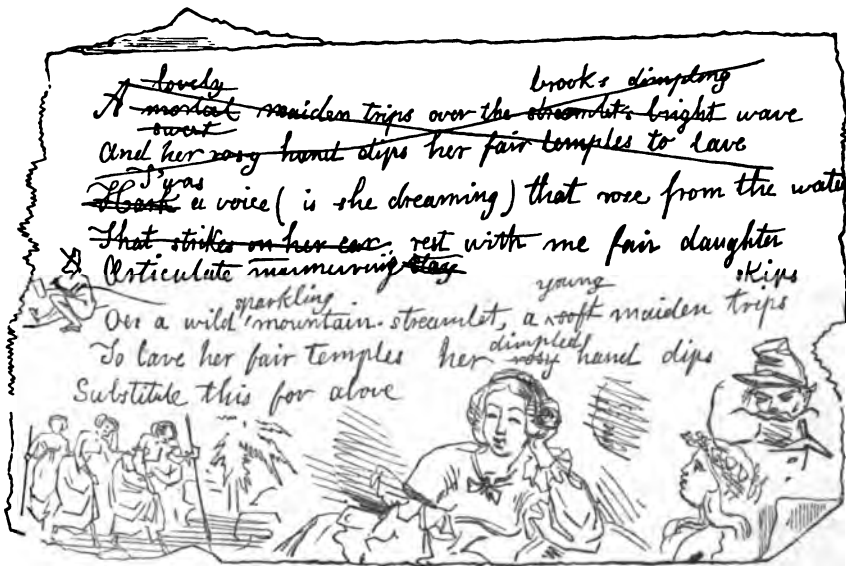 lovely brook's dimpling
A mortal maiden trips over the streamlet's bright wave
sweet
And her rosy hand dips her fair temples to lave
T'was
Hark a voice ( is she dreaming ) that rose from the wate
That strikes on her ear, rest with me fair daughter
Articulate murmuring stay
skips
sparkling young
Oer a wild mountain streamlet, a soft maiden trips
dimpled
To lave her fair temples her rosy hand dips
Substitute this for above